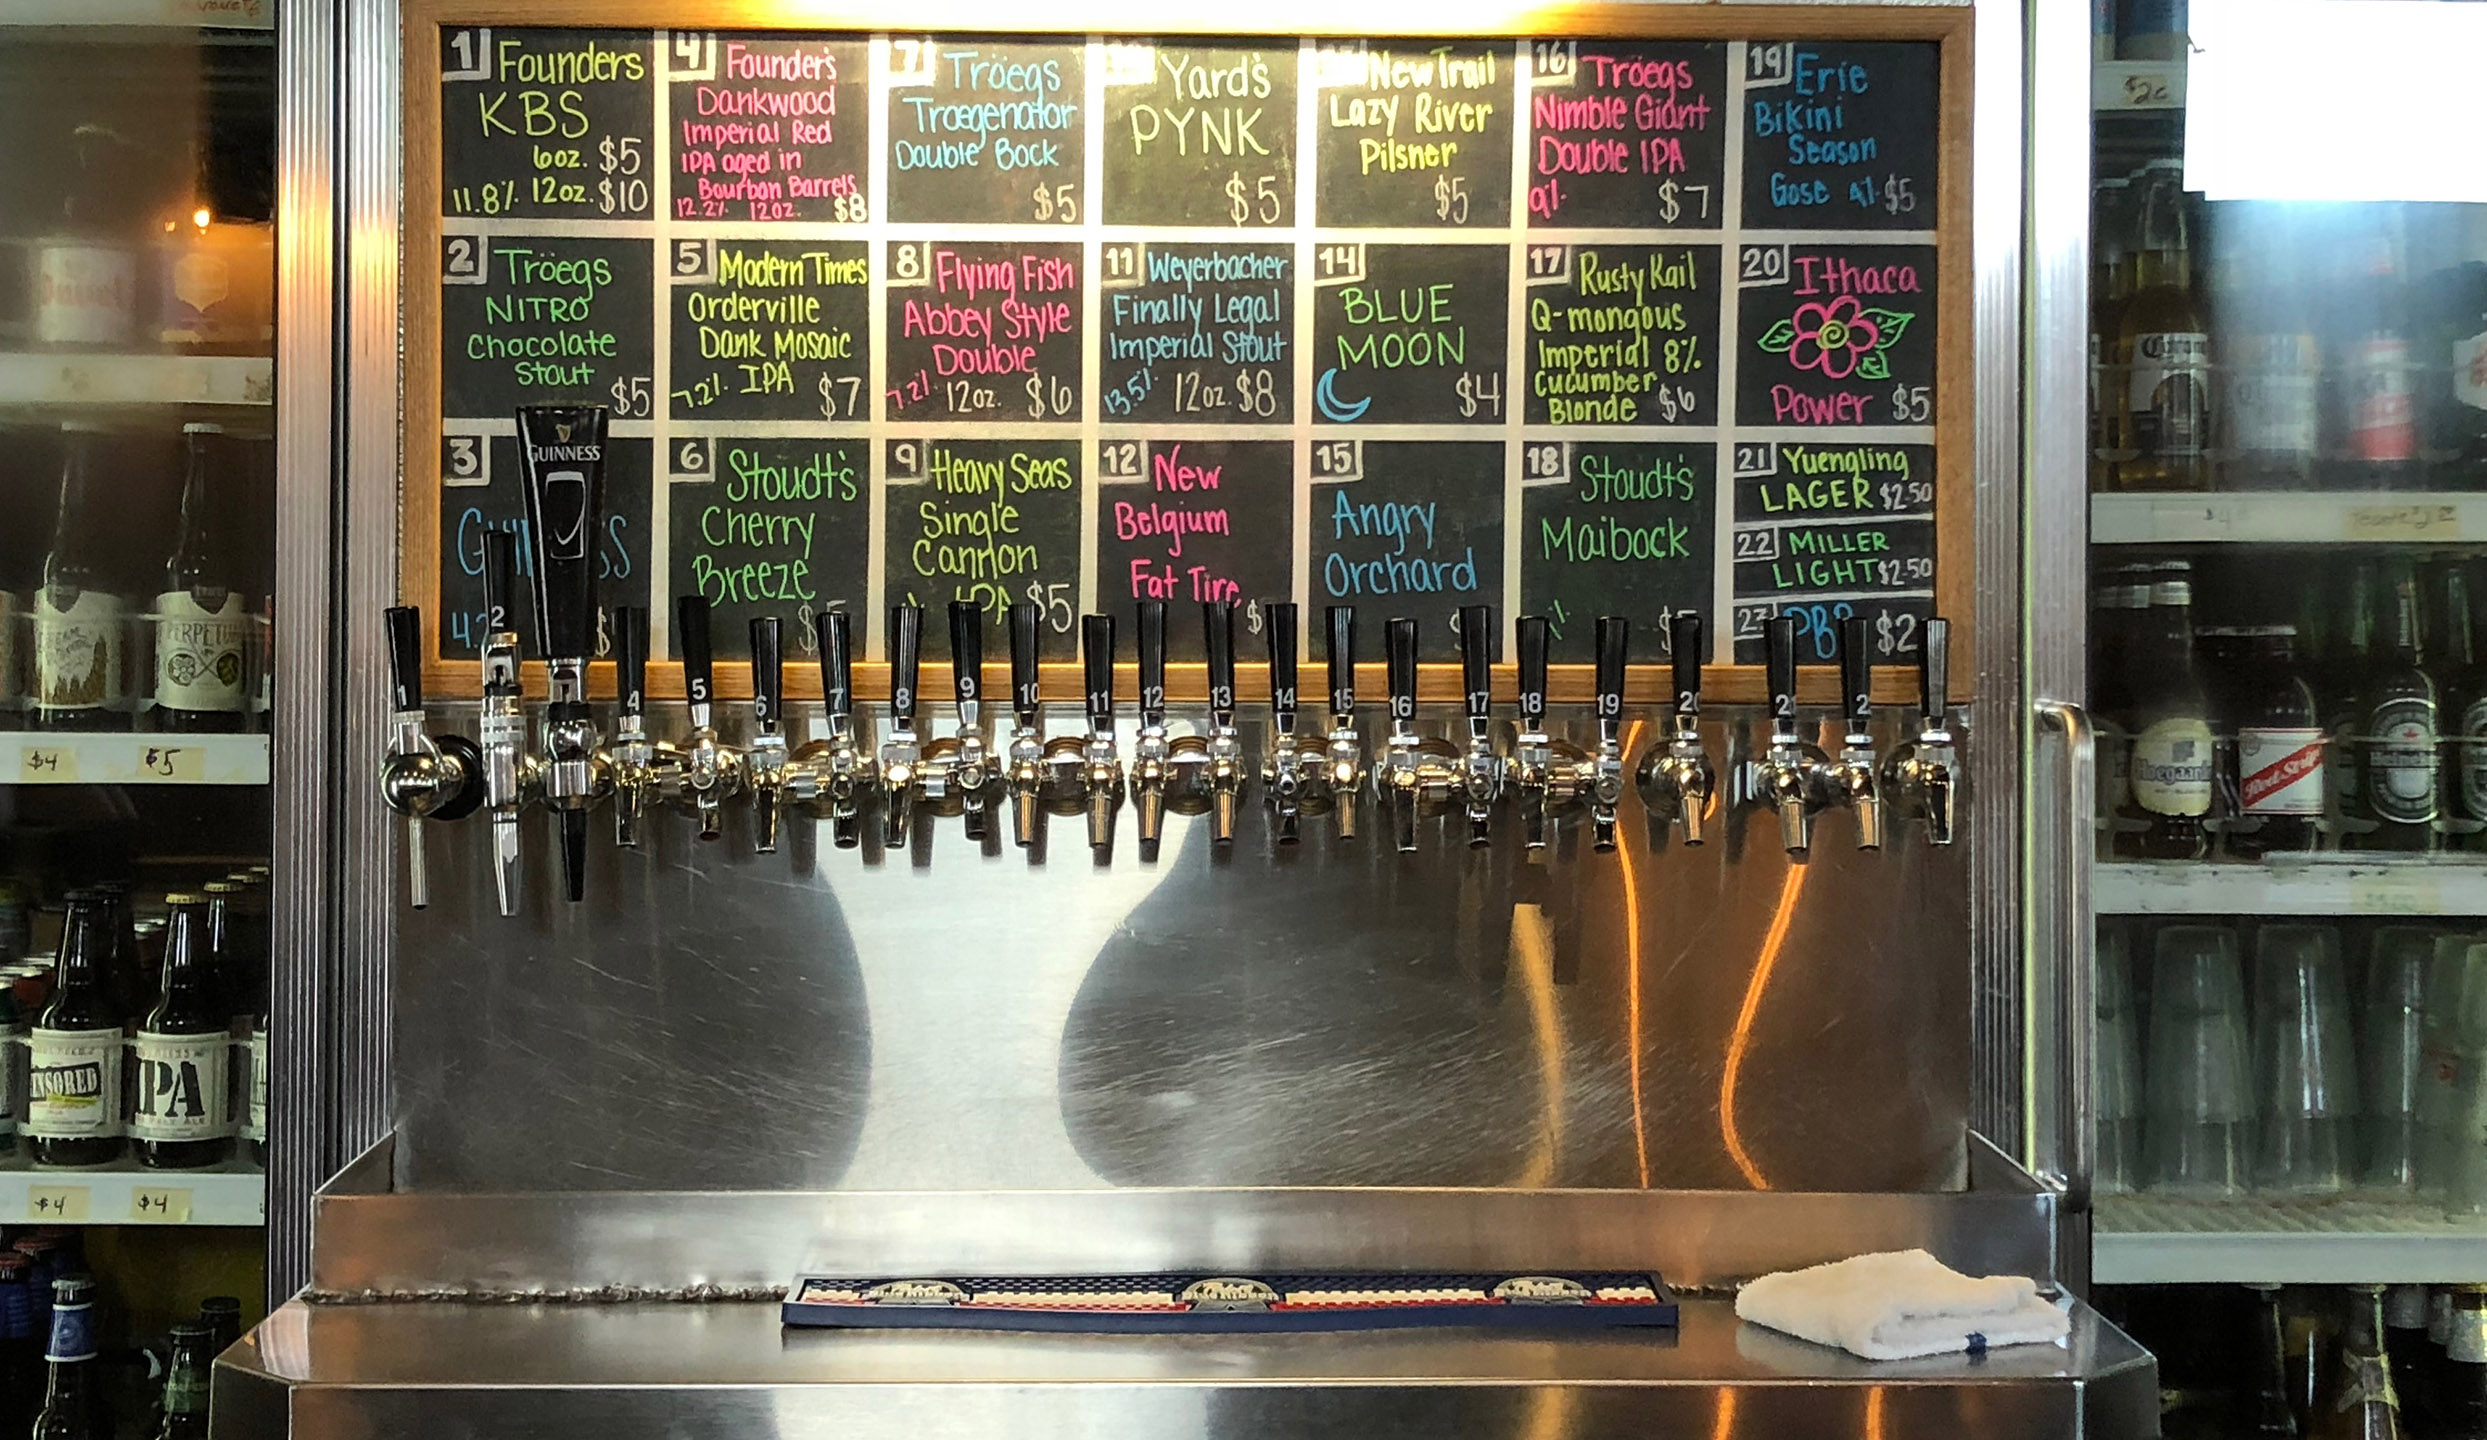 1 Founders
KBS
6oz. $5
11.8% 12oz. $10
4 Founder's
Dankwood
Imperial Red
IPA aged in
Bourbon Barrels
12.2% 12oz. $8
7 Tröegs
Troegenator
Double Bock
$5
Yard's
PYNK
$5
New Trail
Lazy River
Pilsner
$5
16 Tröegs
Nimble Giant
Double IPA
9% $7
19 Erie
Bikini
Season
Gose $5
2 Tröegs
NITRO
Chocolate
Stout
$5
5 Modern Times
Orderville
Dank Mosaic
7.2% IPA $7
8 Flying Fish
Abbey Style
Double
7.2% 12oz. $6
11 Weyerbacher
Finally Legal
Imperial Stout
13.5% 12oz. $8
14
BLUE
MOON
$4
17 Rusty Rail
Q-mongous
Imperial 8%
Cucumber
Blonde $6
20 Ithaca
Power $5
3
GUINNESS
6 Stoudt's
Cherry
Breeze
9 Heavy Seas
Single
Cannon
IPA $5
12 New
Belgium
Fat Tire
15
Angry
Orchard
18 Stoudt's
Maibock
21 Yuengling
LAGER $2.50
22 MILLER
LIGHT $2.50
23 PBR $2
1 2 4 5 6 7 8 9 10 11 12 13 14 15 16 17 18 19 20 21 2
$4 $5
IPA
$4 $4
Corona
Hoegaarden
Red Stripe
Heineken